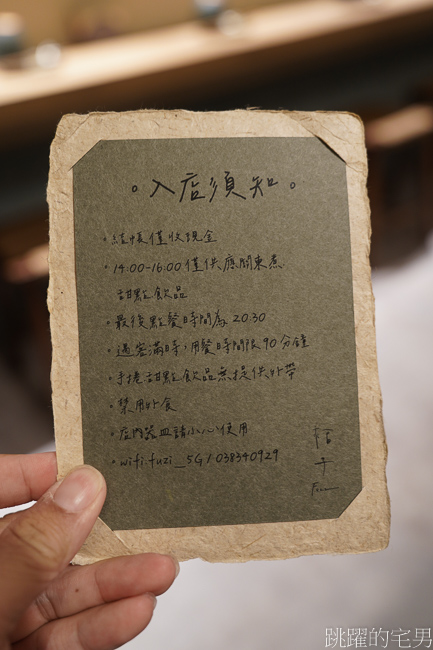 。入店須知。
・結帳僅收現金
・14:00-16:00 僅供應關東煮
甜點飲品
・最後點餐時間為 20:30
・遇客滿時,用餐時間限90分鐘
・手捲甜點飲品無提供外帶
・禁用外食
・店內器皿請小心使用
・wifi:fuzi_5G / 038340929
跳躍的宅男